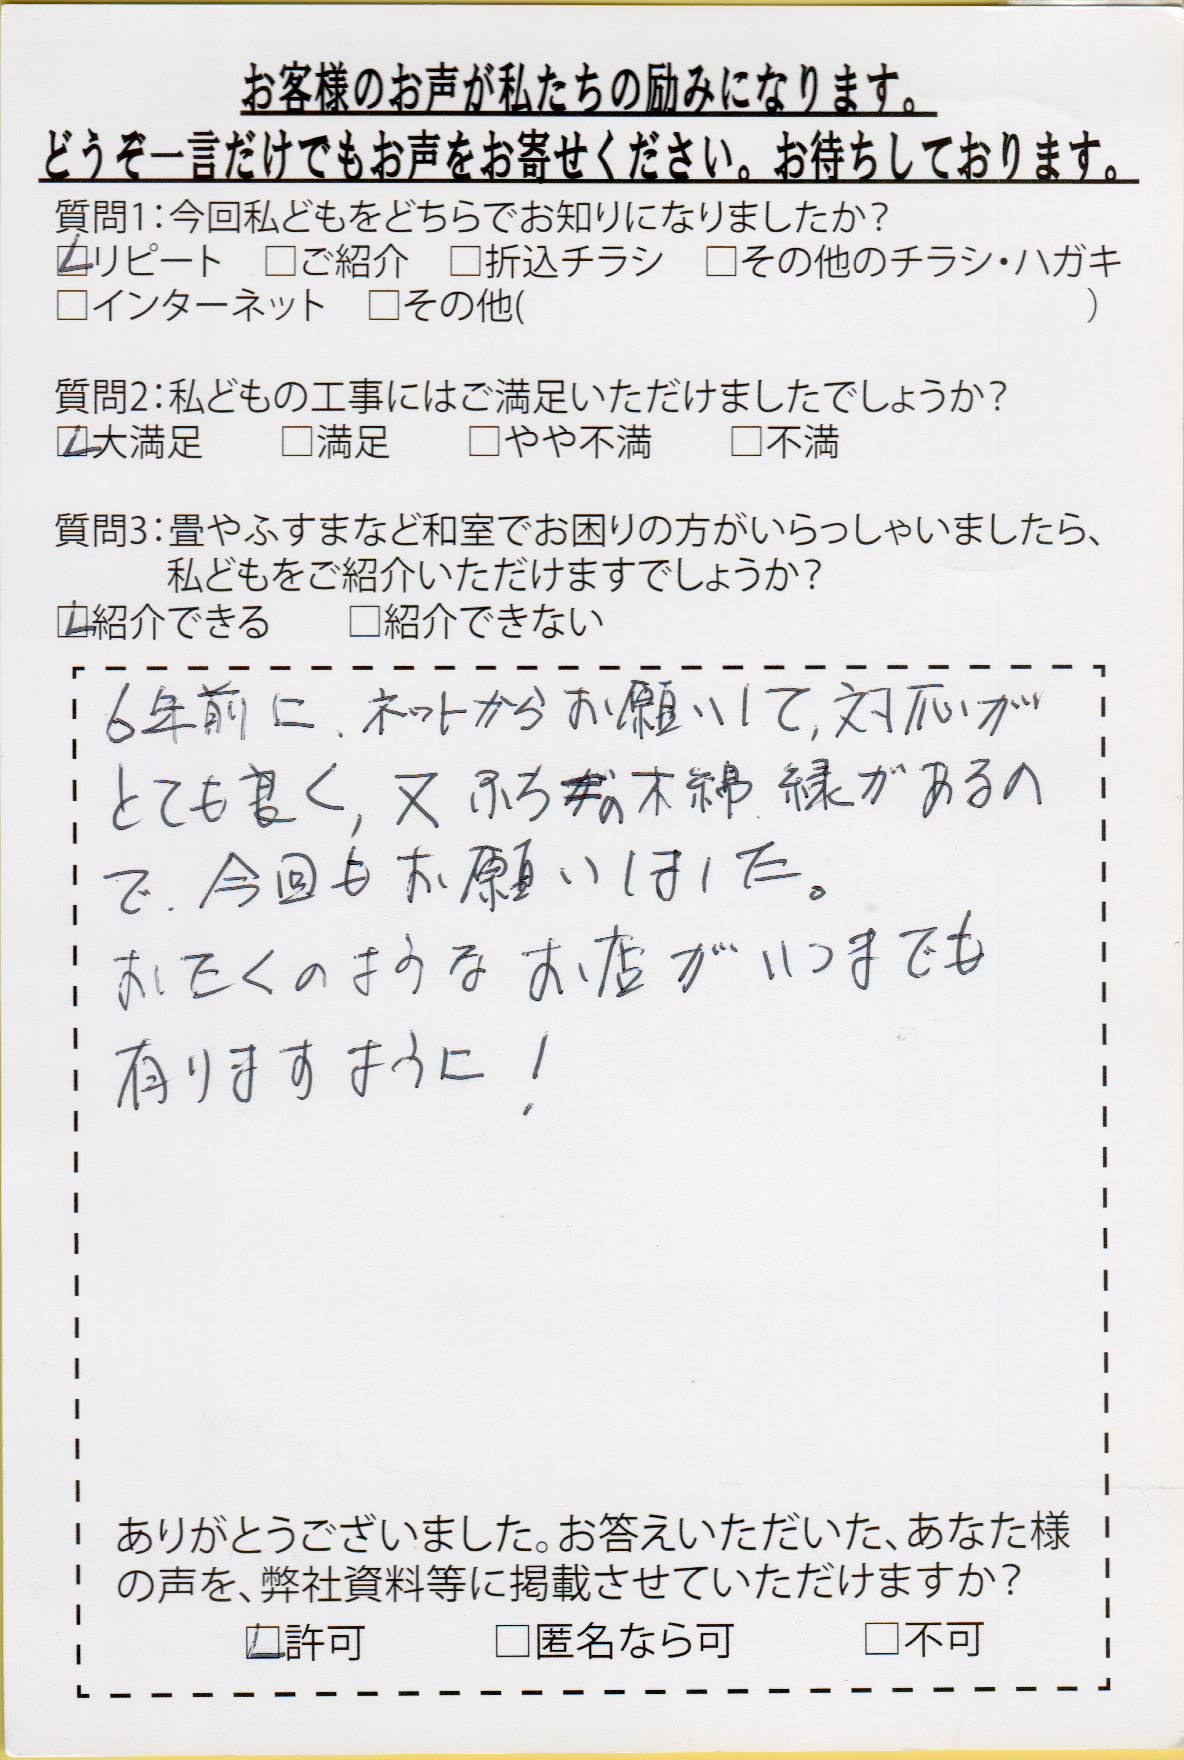 お客様のお声が私たちの励みになります。
どうぞ一言だけでもお声をお寄せください。お待ちしております。
質問1：今回私どもをどちらでお知りになりましたか？
☑リピート □ご紹介 □折込チラシ □その他のチラシ・ハガキ
□インターネット □その他( )
質問2：私どもの工事にはご満足いただけましたでしょうか？
☑大満足 □満足 □やや不満 □不満
質問3：畳やふすまなど和室でお困りの方がいらっしゃいましたら、
私どもをご紹介いただけますでしょうか？
☑紹介できる □紹介できない
6年前に、ネットからお願いして、対応が
とても良く、又ふちの木綿縁があるの
で、今回もお願いしました。
おたくのようなお店がいつまでも
有りますように！
ありがとうございました。お答えいただいた、あなた様
の声を、弊社資料等に掲載させていただけますか？
☑許可 □匿名なら可 □不可